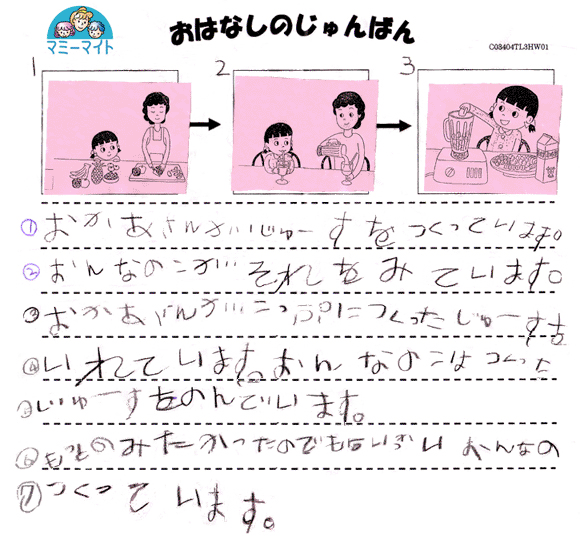 マミーマイト
おはなしのじゅんばん
C03404TL3HW01
1 2 3
① おかあさんがじゅーすをつくっています。
② おんなのこがそれをみています。
③ おかあさんがこっぷにつくったじゅーすを
④ いれています。おんなのこはつくった
⑤ じゅーすをのんでいます。
⑥ もっとのみたかったのでもういっかい おんなの
⑦ つくっています。